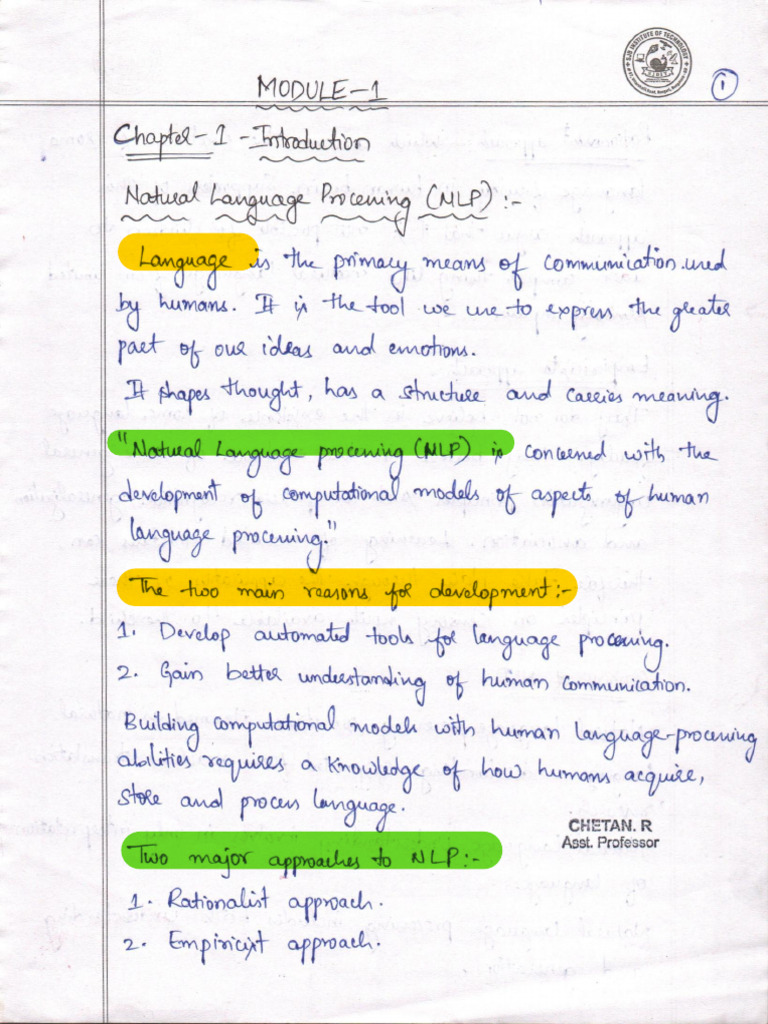 SJB INSTITUTE OF TECHNOLOGY
1
MODULE-1
Chapter-1 - Introduction
Natural Language Processing (NLP) :-
Language is the primary means of communication used
by humans. It is the tool we use to express the greater
part of our ideas and emotions.
It shapes thought, has a structure and carries meaning.
"Natural Language processing (NLP) is concerned with the
development of computational models of aspects of human
language processing."
The two main reasons for development:-
1. Develop automated tools for language processing.
2. Gain better understanding of human communication.
Building computational models with human language-processing
abilities requires a knowledge of how humans acquire,
store and process language.
CHETAN. R
Asst. Professor
Two major approaches to NLP:-
1. Rationalist approach.
2. Empiricist approach.